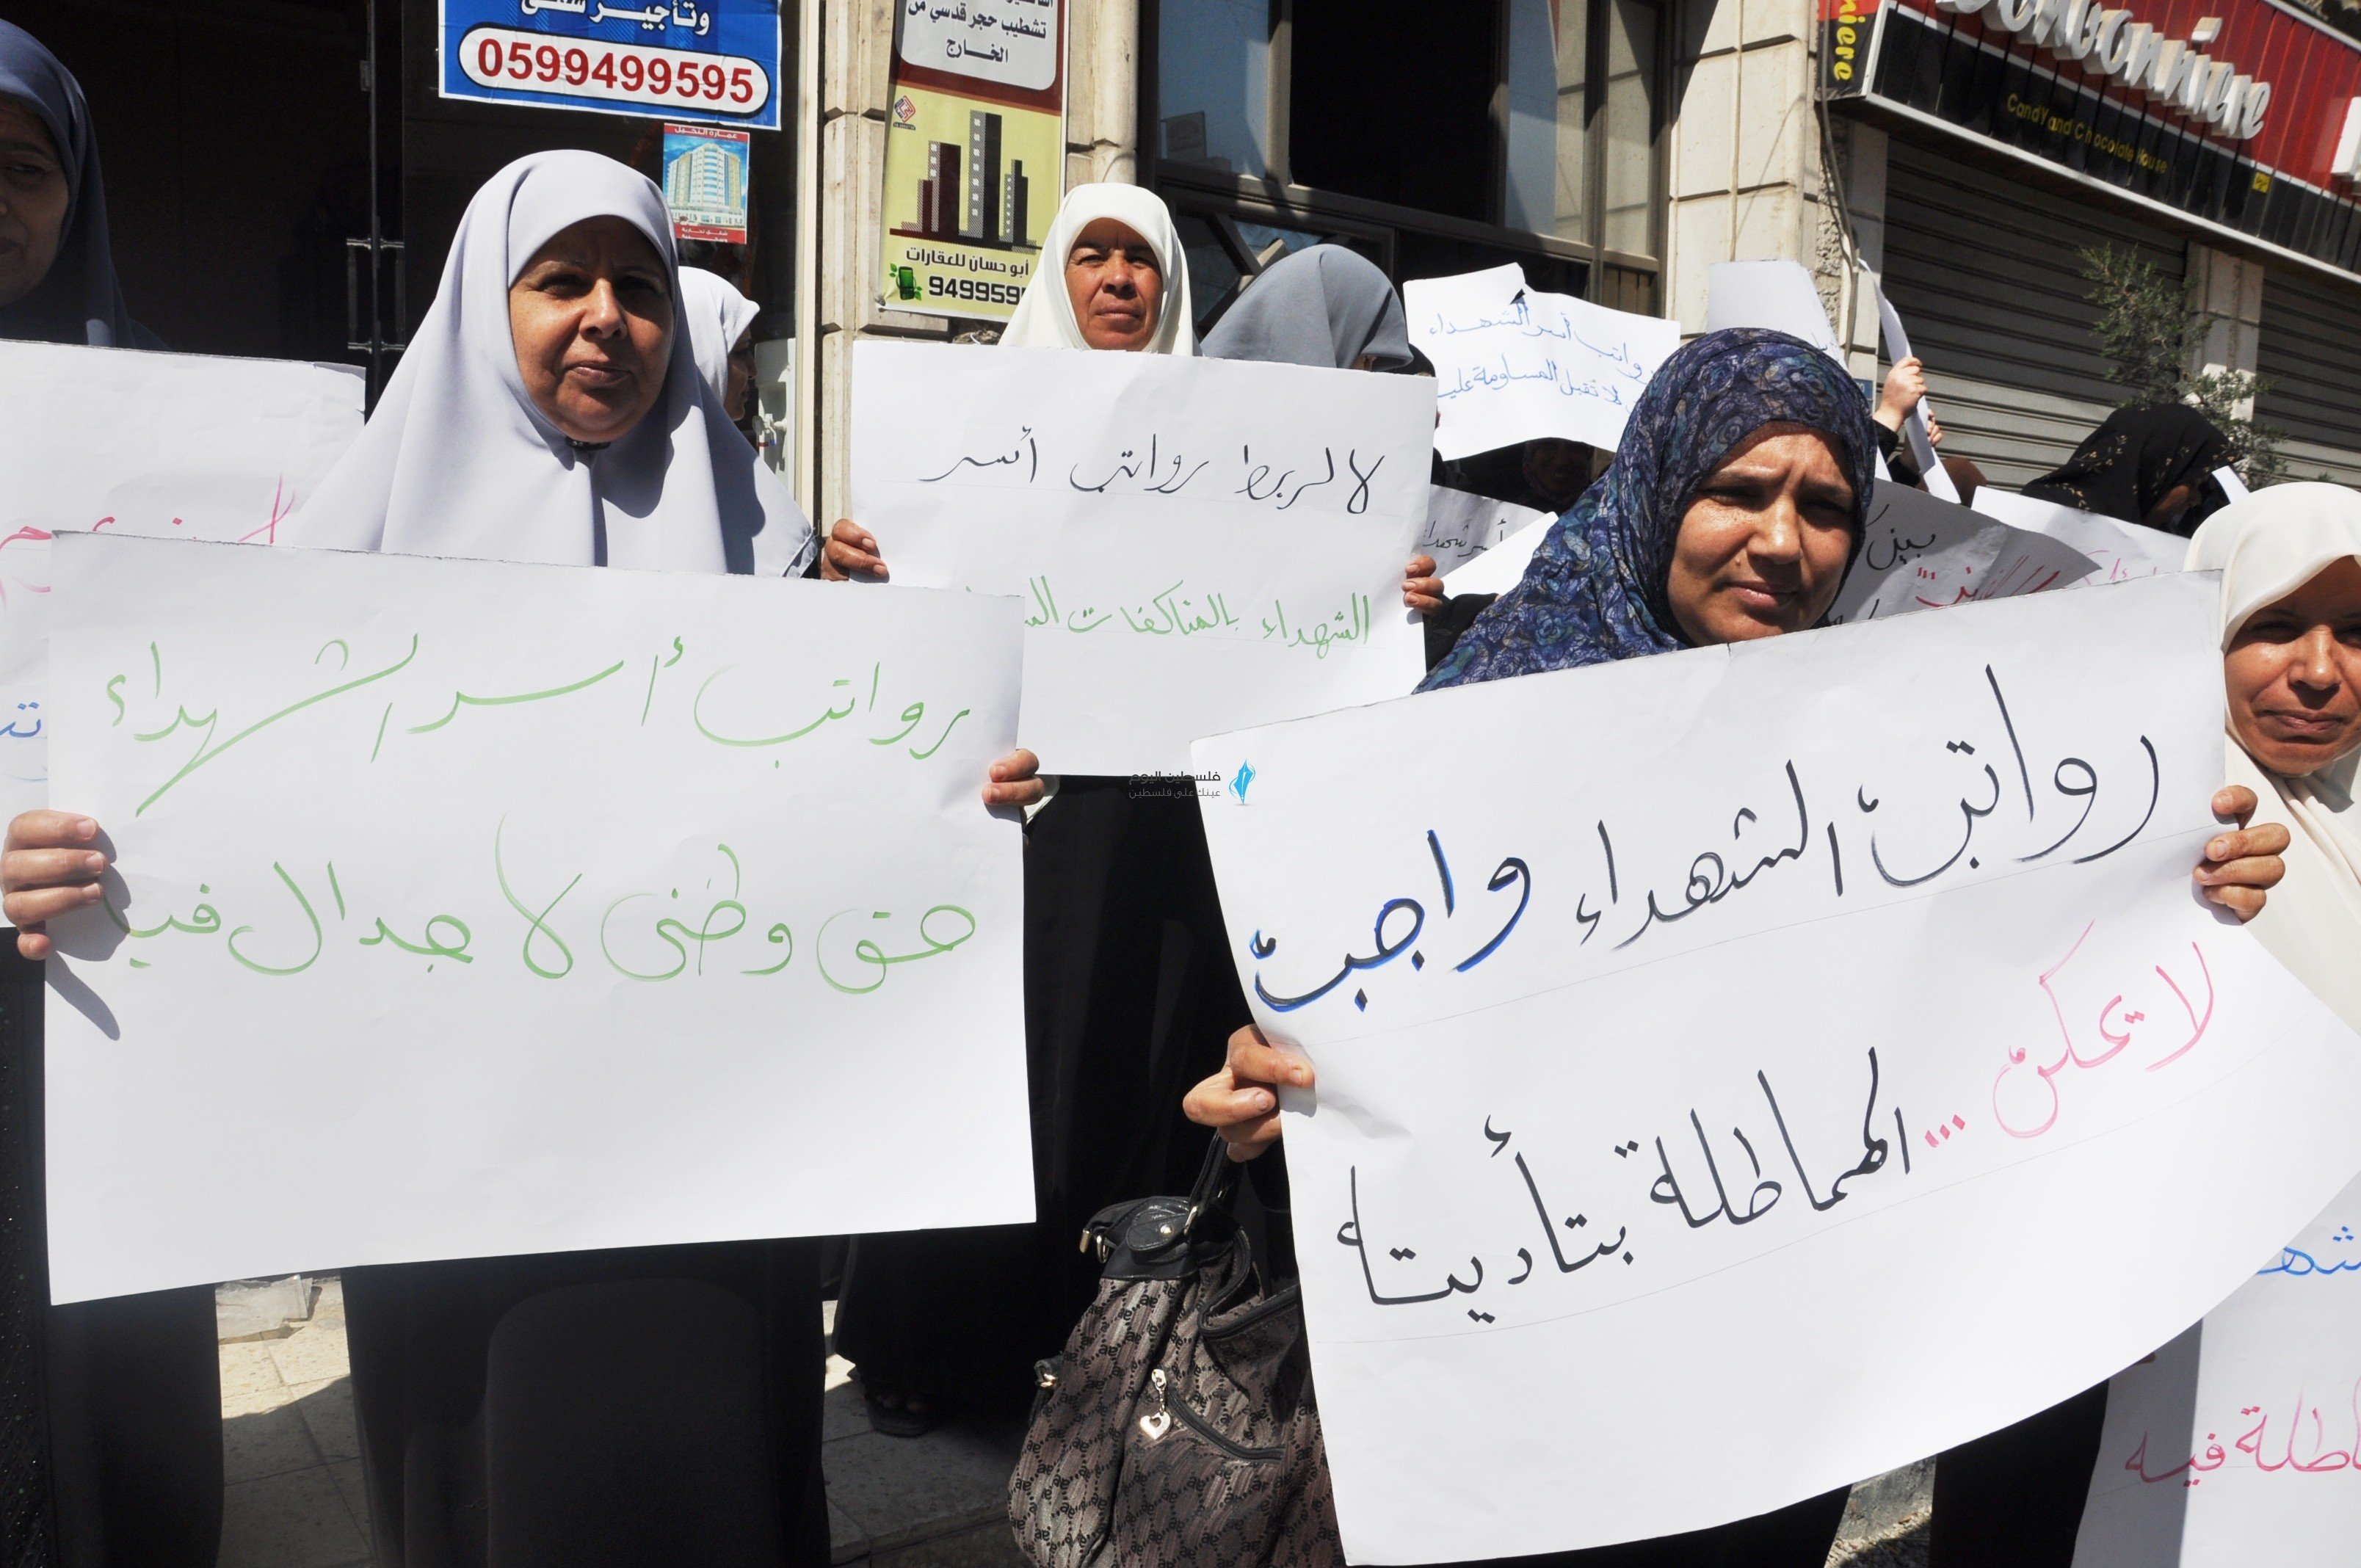 وتأجير
0599499595
تشطيب حجر قدسي من
الخارج
عمارة النخيل
أبو حسان للعقارات
949959
Bonbonniere
CandY and Chocolate House
niere
رواتب أسر الشهداء
لا تقبل المساومة عليـ
لا لربط رواتب أسر
الشهداء بالمناكفات الـ
أسر شهداء
رواتب أسر الشهداء
حق وطني لا جدال فيه
فلسطين اليوم
عينك على فلسطين
رواتب الشهداء واجب
لا يمكن ... المماطلة بتأديتاه
شهـ
ـاطلة فيه